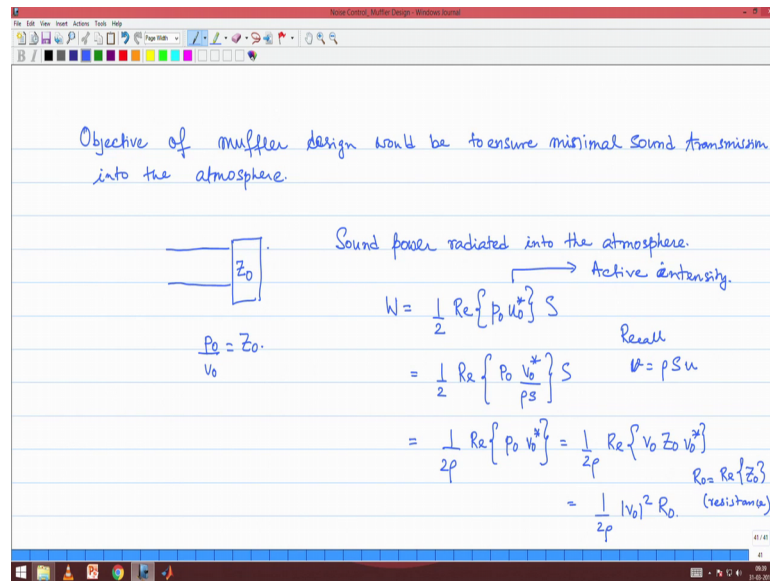 Noise Control_ Muffler Design - Windows Journal
File Edit View Insert Actions Tools Help
Page Width
B I
Objective of muffler design would be to ensure minimal sound transmission
into the atmosphere.
Sound power radiated into the atmosphere.
Z₀
→ Active intensity.
W = 1/2 Re{p₀ u₀*} S
p₀/v₀ = Z₀.
Recall
v = ρSu
= 1/2 Re{p₀ v₀*/ρS} S
= 1/2ρ Re{p₀ v₀*} = 1/2ρ Re{v₀ Z₀ v₀*}
R₀ = Re{Z₀}
(resistance)
= 1/2ρ |v₀|² R₀.
41/41
41
09:39